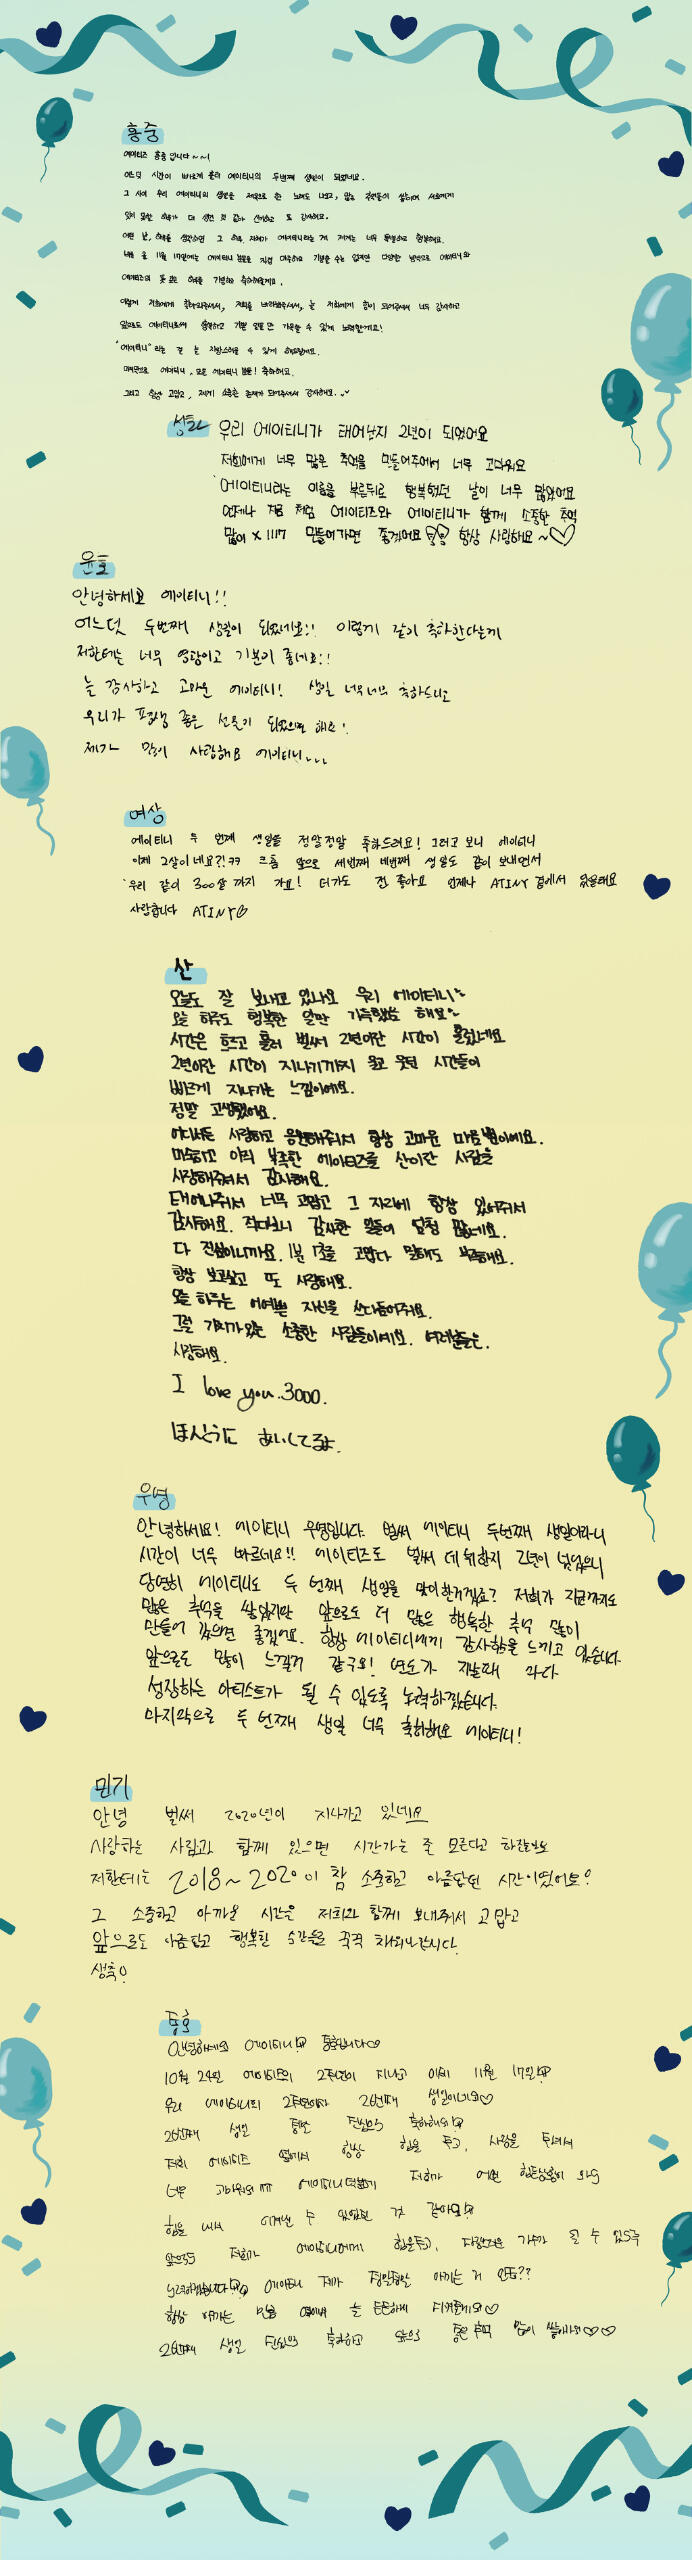 홍중
에이티즈 홍중 입니다~~!
어느덧 시간이 빠르게 흘러 에이티니의 두번째 생일이 되었네요.
그 사이 우리 에이티니의 생일을 제목으로 한 노래도 나오고, 많은 추억들이 쌓이며 서로에게
잊지 못할 하루가 더 생긴 것 같아 신기하고 또 감사해요.
어떤 날, 하루를 생각하면 그 하루 자체가 에이티니라는 게 저에게는 너무 특별하고 행복해요.
올 11월 17일에는 에이티니 분들을 직접 마주하고 기념할 수는 없지만 다양한 방법으로 에이티니와
에이티즈의 또 다른 하루를 기념하고 축하해줄게요.
이렇게 저희에게 찾아와주셔서, 저희를 바라봐주셔서, 늘 저희에게 힘이 되어주셔서 너무 감사하고
앞으로도 에이티니로써 행복하고 기쁜 일들만 가득할 수 있게 노력할게요!
"에이티니"라는 걸 늘 자랑스러울 수 있게 해드릴게요.
마지막으로 에이티니, 모든 에이티니 분들! 축하해요.
그리고 항상 고맙고, 저에게 소중한 존재가 되어주셔서 감사해요.
성화 우리 에이티니가 태어난지 2년이 되었어요
저희에게 너무 많은 추억을 만들어주어서 너무 고마워요
에이티니라는 이름을 부른뒤로 행복했던 날이 너무 많았어요
언제나 지금 처럼 에이티즈와 에이티니가 함께 소중한 추억
많이 x 1117 만들어가면 좋겠어요 항상 사랑해요~♡
윤호
안녕하세요 에이티니!!
어느덧 두번째 생일이 되었네요!! 이렇게 같이 축하한다는게
저한테는 너무 영광이고 기분이 좋네요!!
늘 감사하고 고마운 에이티니! 생일 너무너무 축하드리고
우리가 평생 좋은 선물이 되었으면 해요!
제가 많이 사랑해요 에이티니...
여상
에이티니 두 번째 생일을 정말정말 축하드려요! 그러고 보니 에이티니
이제 2살이네요?!ㅋㅋ 크흠 앞으로 세번째 네번째 생일도 같이 보내면서
우리 같이 300살 까지 가요! 더가도 전 좋아요 언제나 ATINY 곁에서 있을테요
사랑합니다 ATINY♡
산
오늘도 잘 보내고 있나요 우리 에이티니~
오늘 하루도 행복한 일만 가득했음 해요~
시간은 흐르고 흘러 벌써 2년이란 시간이 흘렀네요
2년이란 시간이 지나기까지 울고 웃던 시간들이
빠르게 지나가는 느낌이에요.
정말 고생했어요.
어디서든 사랑하고 응원해줘서 항상 고마운 마음뿐이에요.
미숙하고 아직 부족한 에이티즈를 산이란 사람을
사랑해주셔서 감사해요.
태어나줘서 너무 고맙고 그 자리에 항상 있어줘서
감사해요. 적다보니 감사한 일들이 엄청 많네요.
다 진심이니까요. 1분 1초를 고맙다 말해도 부족해요.
항상 보고싶고 또 사랑해요.
오늘 하루는 어여쁜 자신을 쓰다듬어줘요.
그럴 가치가있는 소중한 사람들이에요. 여러분들은.
사랑해요.
I love you.3000.
ほんとうに あいしてるよ.
우영
안녕하세요! 에이티니 우영입니다. 벌써 에이티니 두번째 생일이라니
시간이 너무 빠르네요!! 에이티즈도 벌써 데뷔한지 2년이 넘었으니
당연히 에이티니도 두 번째 생일을 맞이한거겠죠? 저희가 지금까지도
많은 추억을 쌓았지만 앞으로도 더 많은 행복한 추억 많이
만들어 갔으면 좋겠어요. 항상 에이티니에게 감사함을 느끼고 있습니다.
앞으로도 많이 느낄거 같구요! 년도가 지날때 마다
성장하는 아티스트가 될 수 있도록 노력하겠습니다.
마지막으로 두 번째 생일 너무 축하해요 에이티니!
민기
안녕 벌써 2020년이 지나가고 있네요
사랑하는 사람과 함께 있으면 시간가는 줄 모른다고 하잖아요
저한테는 2018~2020이 참 소중하고 아름답던 시간이였어요?
그 소중하고 아까운 시간은 저희와 함께 보내줘서 고맙고
앞으로도 아름답고 행복한 순간들로 꾹꾹 채워나갑시다.
생축!
종호
안녕하세요 에이티니!! 종호입니다♡
10월 24일 에이티즈의 2주년이 지나고 이제 11월 17일!!
우리 에이티니의 2주년이자 2번째 생일이네요♡
2번째 생일 정말 진심으로 축하해요!!
저희 에이티즈 옆에서 항상 힘을 주고, 사랑을 주셔서
너무 고마워요 ㅠㅠ 에이티니 덕분에 저희가 어떤 힘든상황이 와도
힘을 내서 이겨낼 수 있었던 것 같아요!!
앞으로도 저희가 에이티니에게 힘을주고, 자랑스러운 가수가 될 수 있도록
노력하겠습니다!! 에이티니 제가 정말정말 아끼는 거 알죠??
항상 아끼는 마음 옆에서 늘 든든하게 지켜줄게요♡
2번째 생일 진심으로 축하하고 앞으로 좋은 추억 많이 쌓아가요♡♡